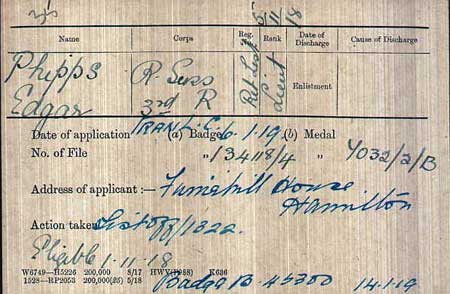 5/11/18
Name Corps Reg. No. Rank Date of Discharge Cause of Discharge
Phipps R. Suss Ret List Lieut Enlistment
Edgar 3rd R
TRANS.
Date of application (a) Badge 6.1.19. (b) Medal
No. of File "/134118/4 " 7032/2/B
Address of applicant :— House
Hamilton
Action taken List Off/132a.
Eligible 1-11-18
W6749—H5226 200,000 8/17 HWV(P988) K686
1528—RP2053 200,000(25) 5/18 Badge B. 45300 14.1.19